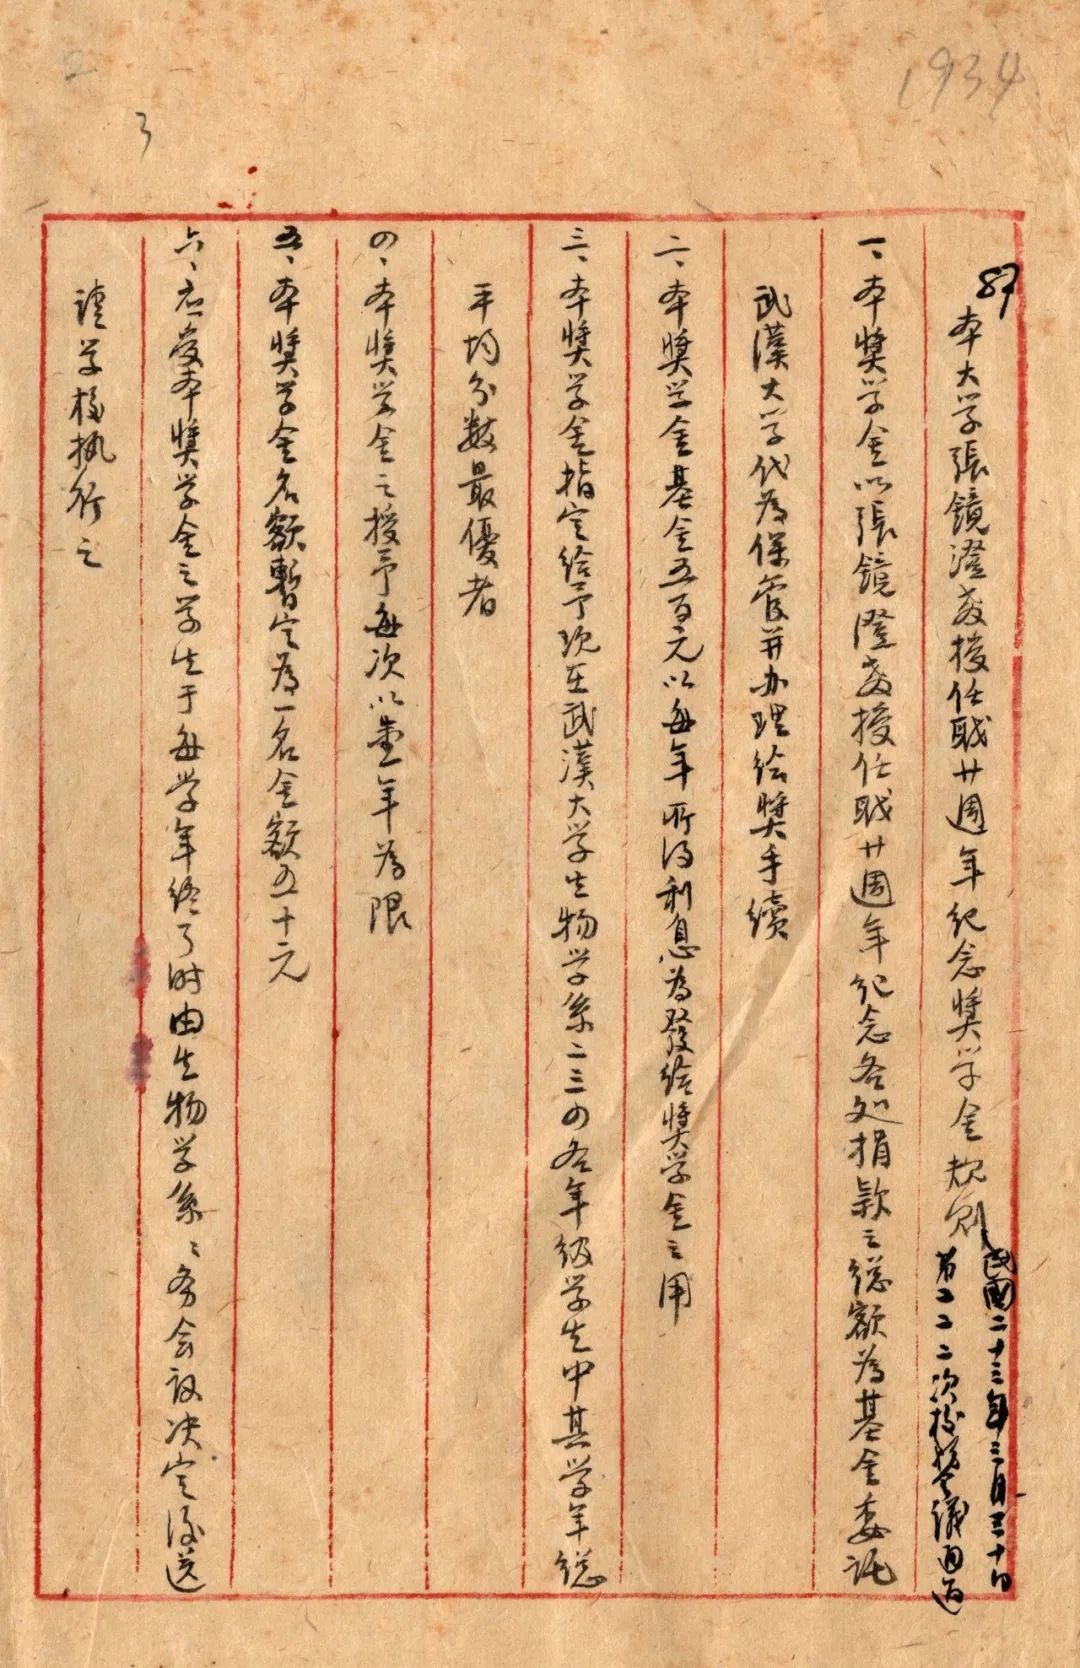 1934
3
89
本大学張镜澄教授任职廿週年纪念奬学金规则
民國二十三年三月三十日
第二二二次校務会議通过
一、本奬学金以張镜澄教授任职廿週年纪念各处捐款之総额为基金委託
武漢大学代为保管并办理给奬手續
二、本奬学金基金五百元以每年所得利息为發给奬学金之用
三、本奬学金指定给予现在武漢大学生物学系二三四各年级学生中其学年総
平均分数最優者
四、本奬学金之授予每次以壹年为限
五、本奬学金名额暫定为一名金额五十元
六、应受本奬学金之学生于每学年终了时由生物学系系务会议决定後送
请学校执行之